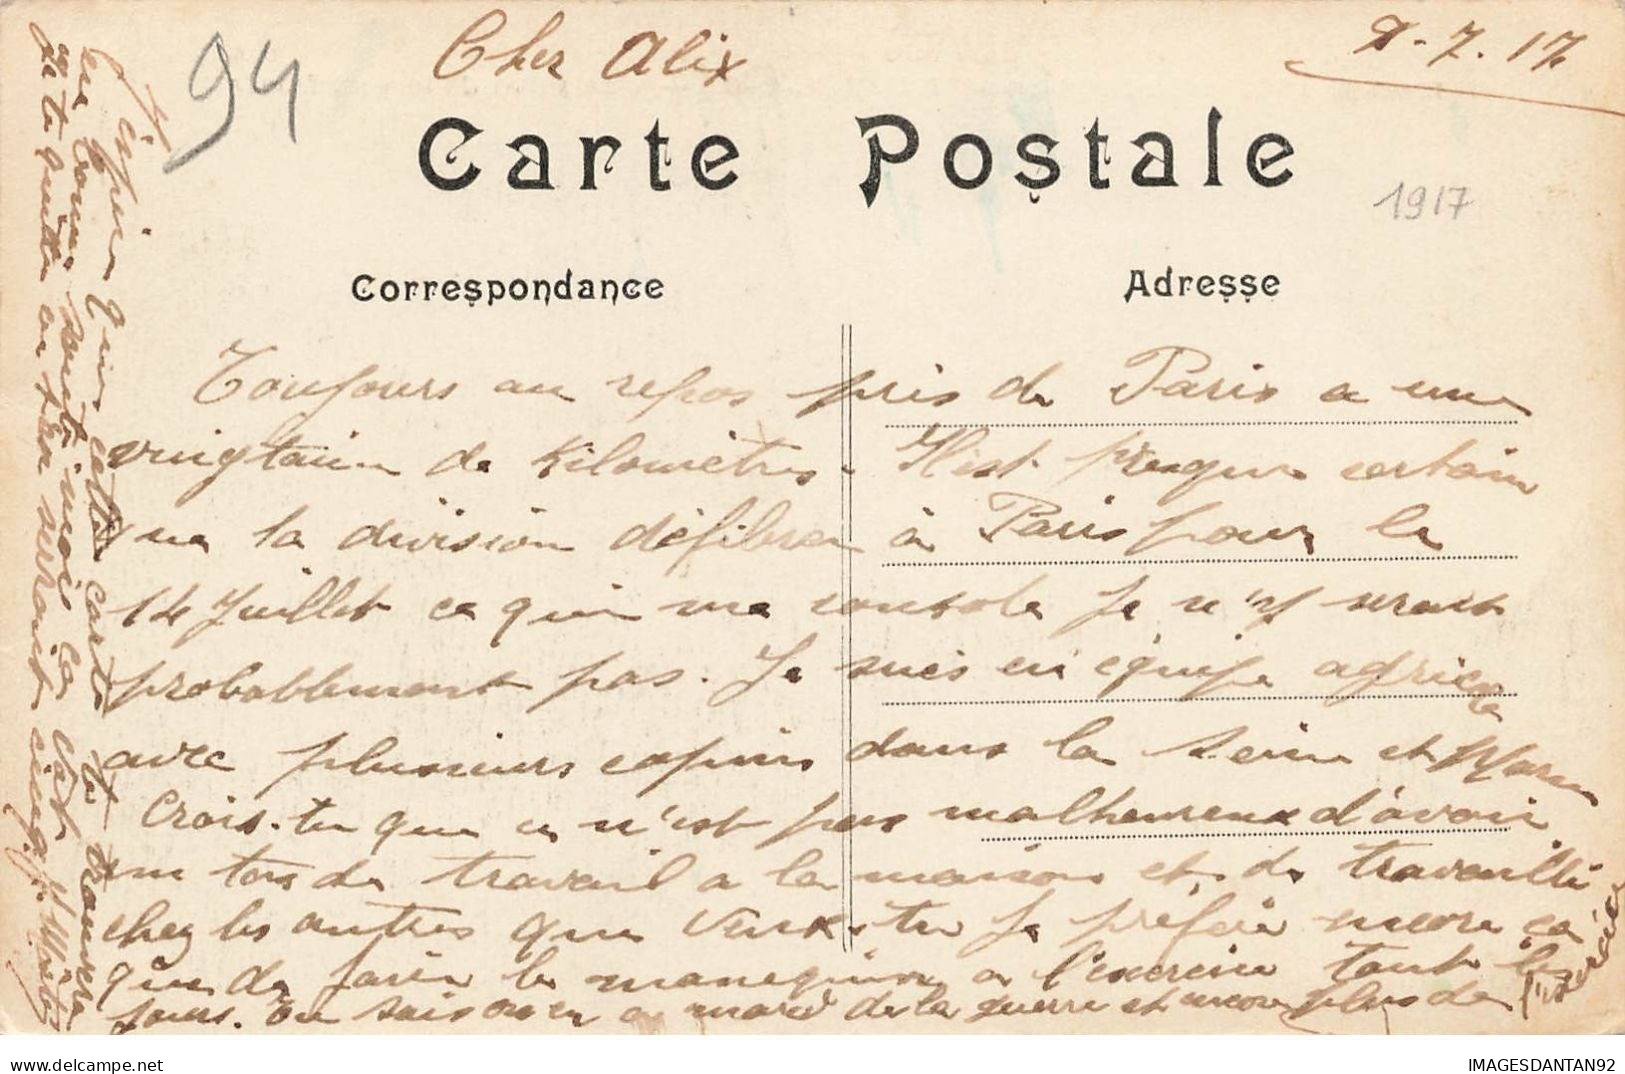 94
Cher Alix
9-7.17
Carte Postale
1917
Correspondance
Adresse
Toujours au repos près de Paris a une
vingtaine de Kilomètres. Il est presque certain
que la division défilera à Paris pour le
14 Juillet ce qui me console Je n'y serait
probablement pas. Je suis en équipe agricole
avec plusieurs copins dans la Seine et Marne
Crois-tu que ce n'est pas malheureux d'avoir
un tas de travail a la maison et de travaillé
chez les autres que veux-tu Je préfère encore ca
que de faire le manequin a l'exercice tout les
jours. on sais on en a marre de la guerre et encore plus de l'exercice
J'éspère que cette carte te trouvera
en bonne santé moi ca va
Je te quitte en t'en serrant cinq.